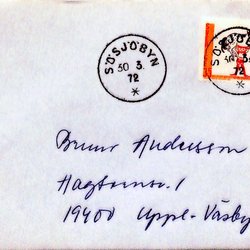 SÖSJÖBYN
30 3
72
SÖSJÖBYN
30 3
72
Bruno Andersson
Hagtornsv. 1
19400 Uppl-Väsby